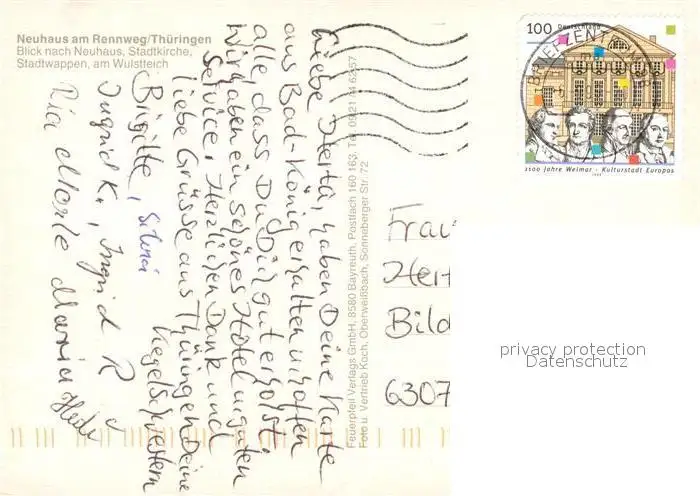 Neuhaus am Rennweg/Thüringen
Blick nach Neuhaus, Stadtkirche,
Stadtwappen, am Wulstteich
Liebe Herta, haben Deine Karte
aus Bad-König erhalten u. hoffen
alle dass Du Dich gut erholst.
Wir haben ein schönes Hotel u. guten
Service. Herzlichen Dank und
liebe Grüsse aus Thüringen Deine
Kegelschwestern
Brigitte, Silvia
Ingrid K., Ingrid R
Ria Merle Maria
Feuerpfeil Verlags GmbH, 8580 Bayreuth, Postfach 160 163, Tel. 09 21 / 4 62 57
Foto u. Vertrieb Koch, Oberweißbach, Sonneberger Str. 72
100 Deutschland
BRIEFZENTRUM
1100 Jahre Weimar - Kulturstadt Europas
1999
Frau
Hert
Bild
6307
privacy protection
Datenschutz